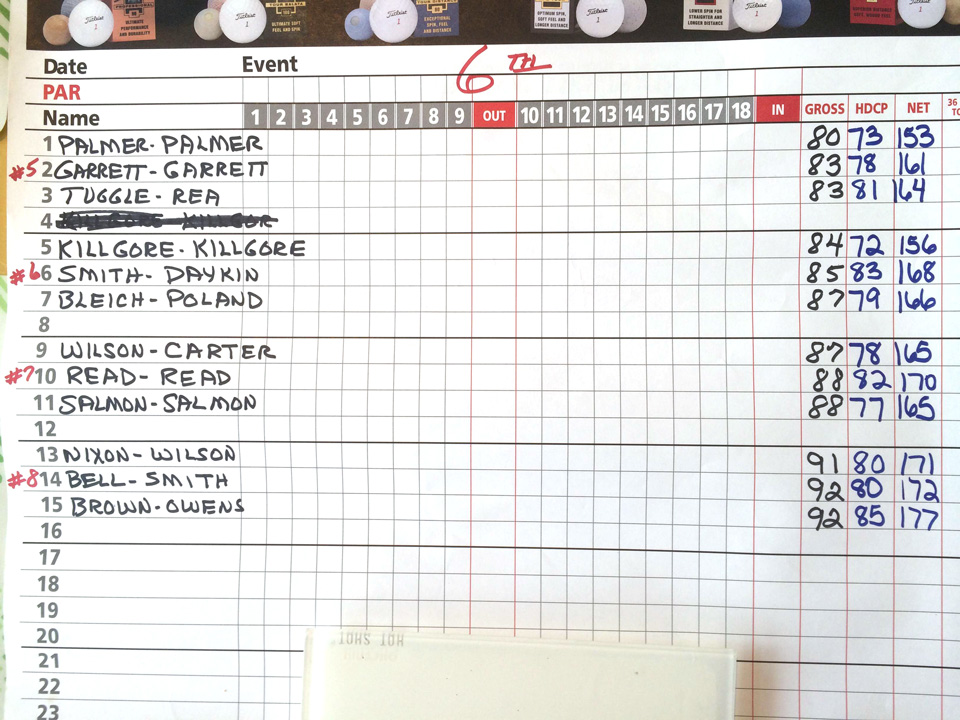 Titleist 1 Titleist 1 Titleist 1 Titleist 1 Titleist 1 Titleist 1
ULTIMATE PERFORMANCE AND DURABILITY
ULTIMATE SOFT FEEL AND SPIN
EXCEPTIONAL SPIN, FEEL AND DISTANCE
OPTIMUM SPIN, SOFT FEEL AND LONGER DISTANCE
LOWER SPIN FOR STRAIGHTER AND LONGER DISTANCE
Date Event 6TH
PAR
Name 1 2 3 4 5 6 7 8 9 OUT 10 11 12 13 14 15 16 17 18 IN GROSS HDCP NET 36
1 PALMER- PALMER 80 73 153
#5 2 GARRETT- GARRETT 83 78 161
3 TUGGLE- REA 83 81 164
4 KILLGORE KILLGOR
5 KILLGORE- KILLGORE 84 72 156
#6 6 SMITH- DAYKIN 85 83 168
7 BLEICH- POLAND 87 79 166
8
9 WILSON- CARTER 87 78 165
#7 10 READ- READ 88 82 170
11 SALMON- SALMON 88 77 165
12
13 NIXON- WILSON 91 80 171
#8 14 BELL- SMITH 92 80 172
15 BROWN-OWENS 92 85 177
16
17
18
19
20
21
22
23